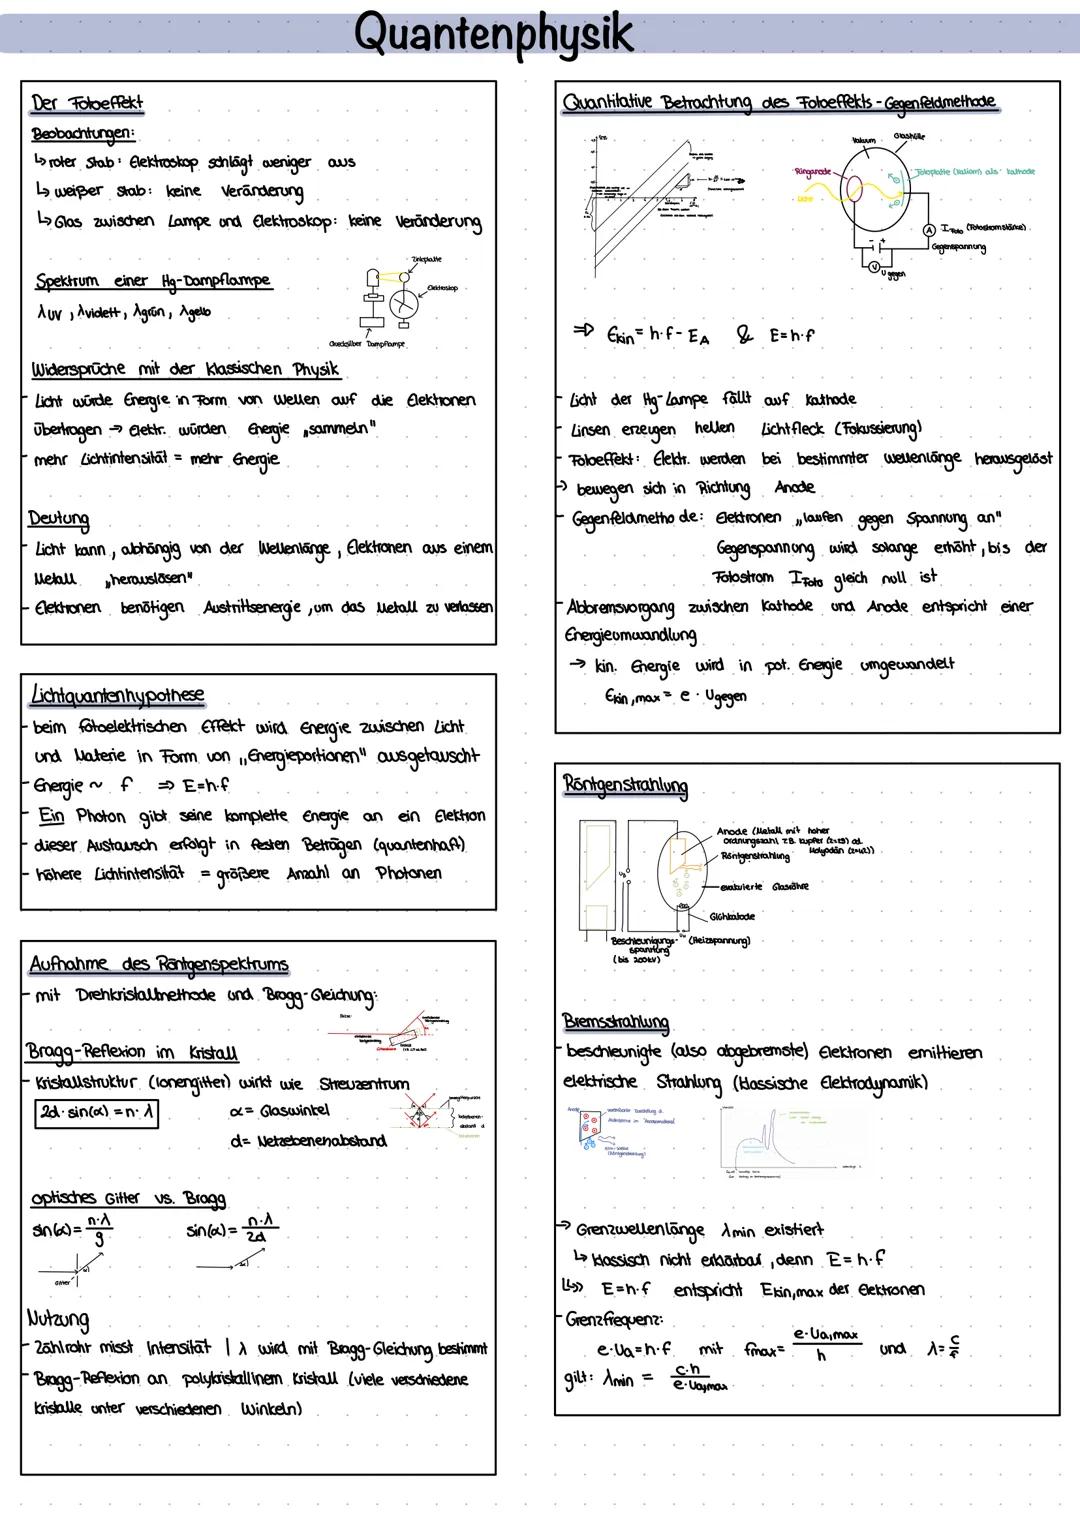 Quantenphysik
Der Fotoeffekt
Beobachtungen:
↳ roter Stab: Elektroskop schlägt weniger aus
↳ weißer Stab: keine Veränderung
↳ Glas zwischen Lampe und Elektroskop: keine Veränderung
Spektrum einer Hg-Dampflampe
λUV, λviolett, λgrün, λgelb
Zinkplatte
Elektroskop
Quecksilber Dampflampe
Widersprüche mit der klassischen Physik
- Licht würde Energie in Form von Wellen auf die Elektronen
übertragen → Elektr. würden Energie „sammeln"
- mehr Lichtintensität = mehr Energie
Deutung
- Licht kann, abhängig von der Wellenlänge, Elektronen aus einem
Metall „herauslösen"
- Elektronen benötigen Austrittsenergie, um das Metall zu verlassen
Lichtquantenhypothese
- beim fotoelektrischen Effekt wird Energie zwischen Licht
und Materie in Form von „Energieportionen" ausgetauscht
- Energie ~ f ⇒ E=h·f
- Ein Photon gibt seine komplette Energie an ein Elektron
- dieser Austausch erfolgt in festen Beträgen (quantenhaft)
- höhere Lichtintensität = größere Anzahl an Photonen
Aufnahme des Röntgenspektrums
- mit Drehkristallmethode und Bragg-Gleichung:
Bragg-Reflexion im Kristall
- Kristallstruktur (Ionengitter) wirkt wie Streuzentrum
2d·sin(α) = n·λ
α = Glaswinkel
d = Netzebenenabstand
optisches Gitter vs. Bragg
sin(α) = n·λ/g
sin(α) = n·λ/2d
Gitter
Nutzung
- Zählrohr misst Intensität | λ wird mit Bragg-Gleichung bestimmt
- Bragg-Reflexion an polykristallinem Kristall (viele verschiedene
Kristalle unter verschiedenen Winkeln)
Quantitative Betrachtung des Fotoeffekts - Gegenfeldmethode
Vakuum
Glashülle
Ringanode
Licht
Fotoplatte (Kalium) als Kathode
I Foto (Fotostromstärke)
Gegenspannung
U gegen
⇒ Ekin = h·f - EA & E=h·f
- Licht der Hg-Lampe fällt auf Kathode
- Linsen erzeugen hellen Lichtfleck (Fokussierung)
- Fotoeffekt: Elektr. werden bei bestimmter Wellenlänge herausgelöst
→ bewegen sich in Richtung Anode
- Gegenfeldmethode: Elektronen „laufen gegen Spannung an"
Gegenspannung wird solange erhöht, bis der
Fotostrom IFoto gleich null ist
- Abbremsvorgang zwischen Kathode und Anode entspricht einer
Energieumwandlung
→ kin. Energie wird in pot. Energie umgewandelt
Ekin,max = e · Ugegen
Röntgenstrahlung
Anode (Metall mit hoher
Ordnungszahl z.B. Kupfer (z=29) od.
Molybdän (z=42))
Röntgenstrahlung
evakuierte Glasröhre
Glühkatode
Beschleunigungs-
spannung
(bis 200kV)
(Heizspannung)
Bremsstrahlung
- beschleunigte (also abgebremste) Elektronen emittieren
elektrische Strahlung (klassische Elektrodynamik)
Anode
→ Grenzwellenlänge λmin existiert
↳ klassisch nicht erklärbar, denn E=h·f
↳ E=h·f entspricht Ekin,max der Elektronen
- Grenzfrequenz:
e·Ua=h·f mit fmax= e·Ua,max/h und λ= c/f
gilt: λmin = c·h/e·Ua,max